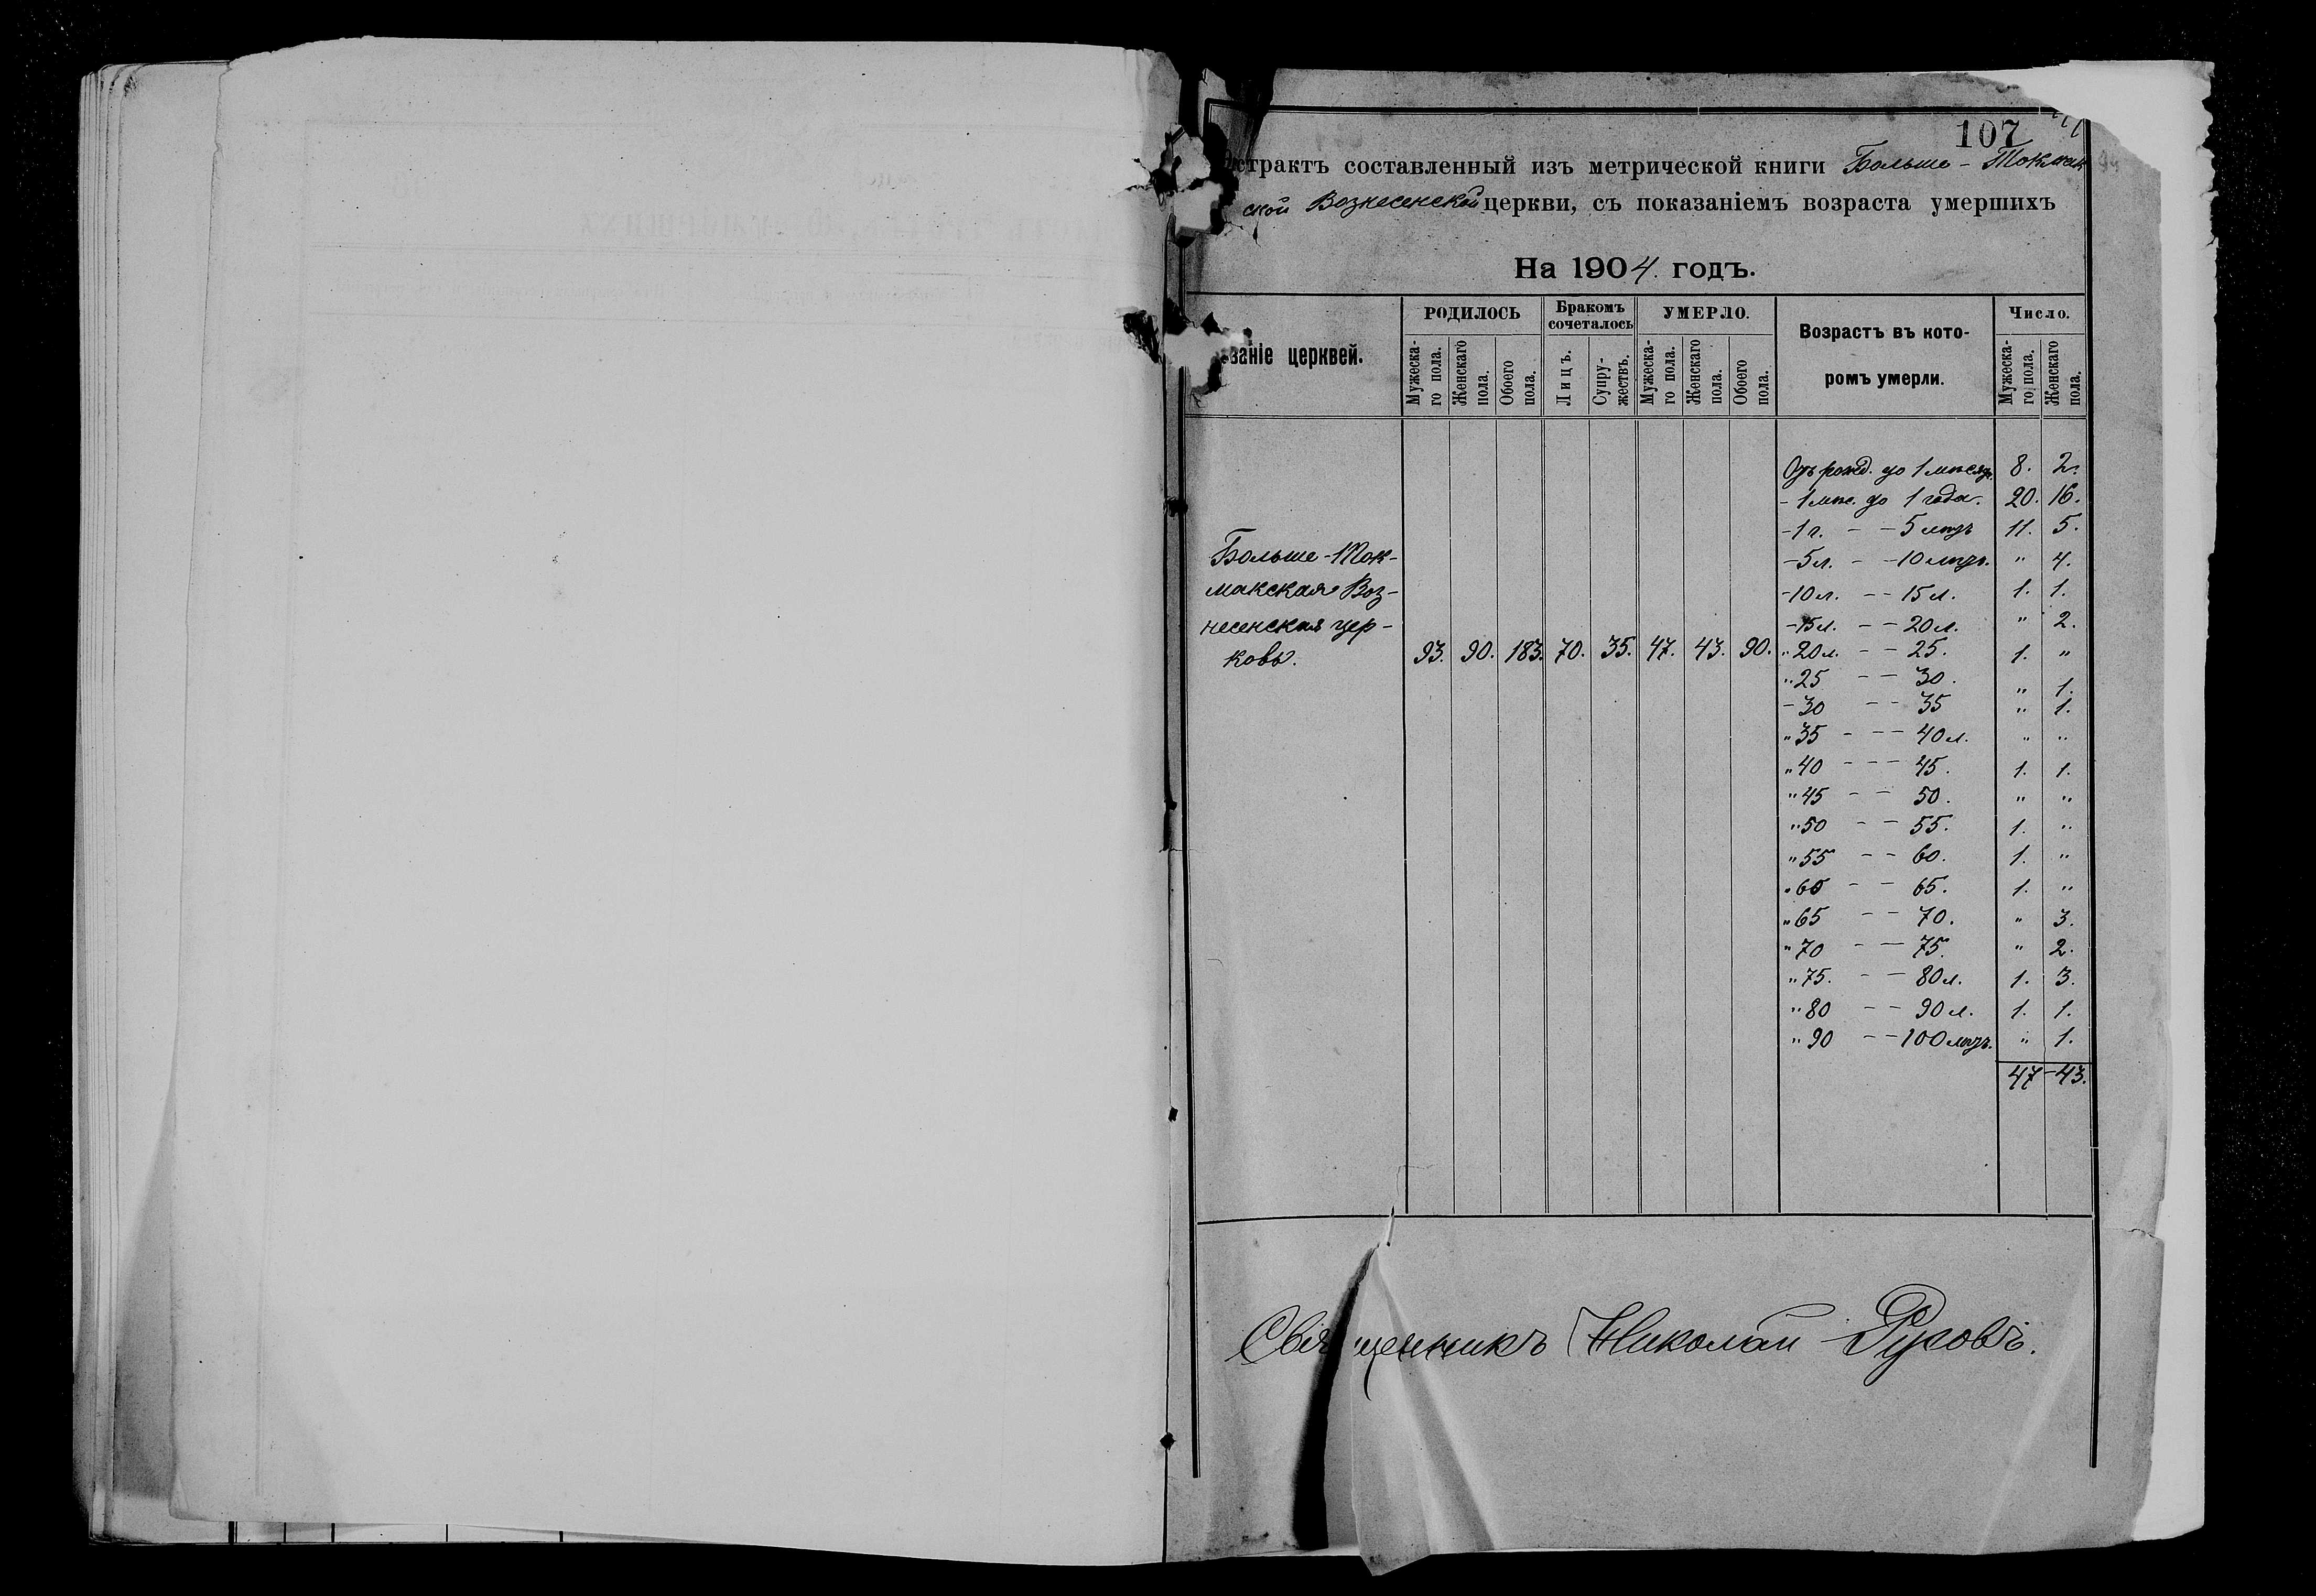 107
страктъ составленный изъ метрической книги Больше-Токмак
ской Вознесенской церкви, съ показаніемъ возраста умершихъ
На 1904. годъ.
ваніе церквей.
РОДИЛОСЬ
Мужеска-
го пола.
Женскаго
пола.
Обоего
пола.
Бракомъ
сочеталось
Лицъ.
Супру-
жествъ.
УМЕРЛО.
Мужеска-
го пола.
Женскаго
пола.
Обоего
пола.
Возрастъ въ кото-
ромъ умерли.
Число.
Мужеска-
го пола.
Женскаго
пола.
Больше-Ток-
макская Воз-
несенская цер-
ковь.
93. 90. 183. 70. 35. 47. 43. 90.
Отъ рожд. до 1 мѣсяц. 8. 2.
- 1 мѣс. до 1 года. 20. 16.
- 1 г. - - 5 лѣтъ 11. 5.
- 5 л. - - 10 лѣтъ. " 4.
- 10 л. - - 15 л. 1. 1.
- 15 л. - - 20 л. " 2.
" 20 л. - - 25. 1. "
" 25 - - 30. " 1.
- 30 - - 35 " 1.
" 35 - - - 40 л. " "
" 40 - - - 45. 1. 1.
" 45 - - 50. " "
" 50 - - 55. 1. "
" 55 - - 60. 1. "
" 60 - - 65. 1. "
" 65 - - 70. " 3.
" 70 - - 75. " 2.
" 75. - - 80 л. 1. 3.
" 80 - - 90 л. 1. 1.
" 90 - - 100 лѣтъ. " 1.
47 - 43.
Священникъ Николай